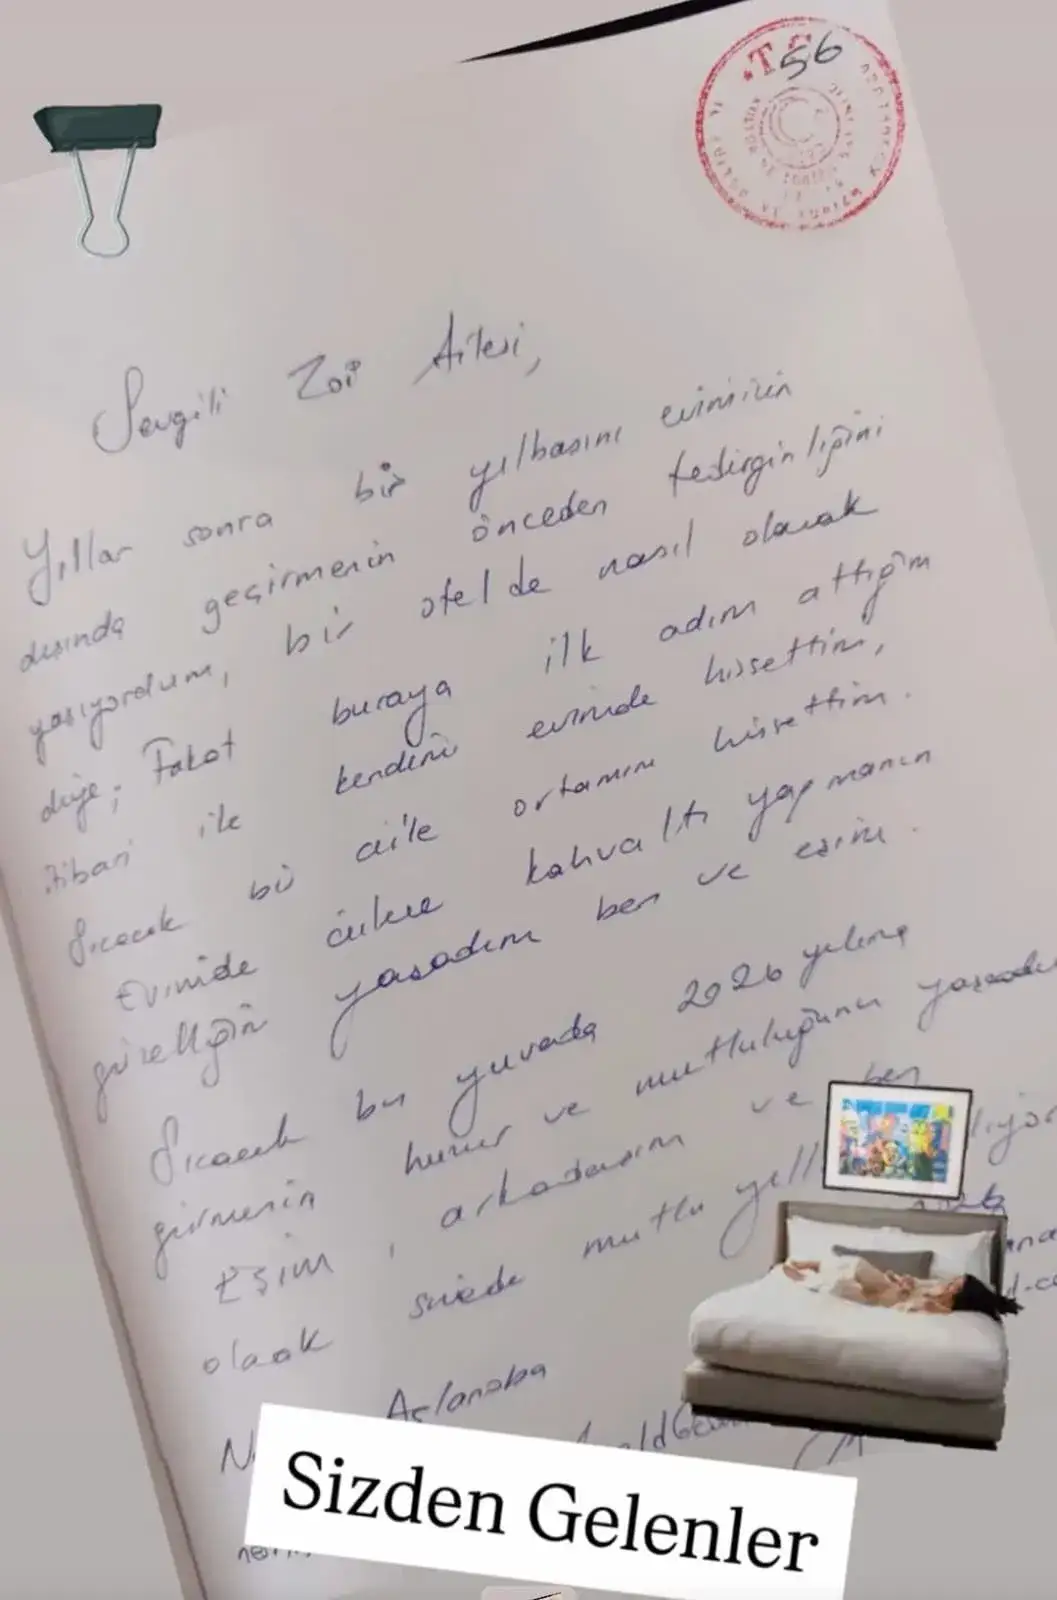 56
T.C.
Sevgili Zoi Ailesi,
Yıllar sonra bir yılbaşını evimizin
dışında geçirmenin önceden tedirginliğini
yaşıyordum, bir otelde nasıl olacak
diye; Fakat buraya ilk adım attığım
itibari ile kendimi evimde hissettim,
Sıcacık bir aile ortamını hissettim.
Evimde ailece kahvaltı yapmanın
güzelliğini yaşadım ben ve eşim.
Sıcacık bu yuvada 2026 yılına
girmenin huzur ve mutluluğunu
Eşim, arkadaşım ve ben
olarak sizede mutlu
2026
Aslanoba
Sizden Gelenler